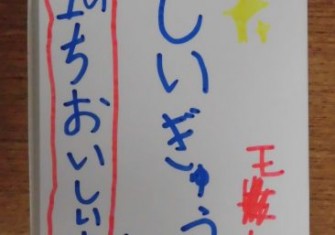 王
しいぎゅう
ちおいしい